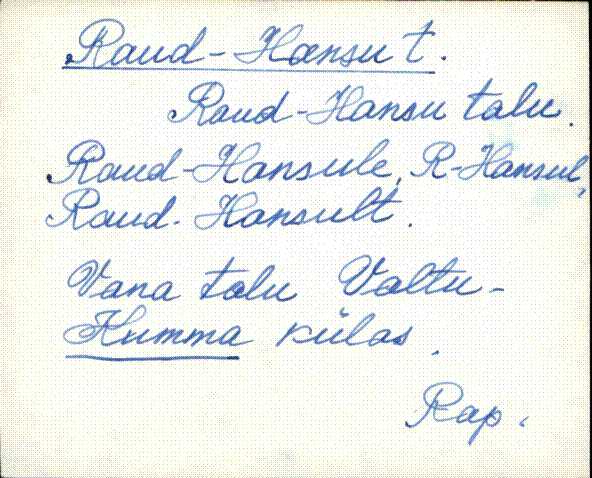 Raud-Hansu t.
Raud-Hansu talu.
Raud-Hansule, R-Hansul,
Raud-Hansult.
Vana talu Valtu-
Kumma külas.
Rap.